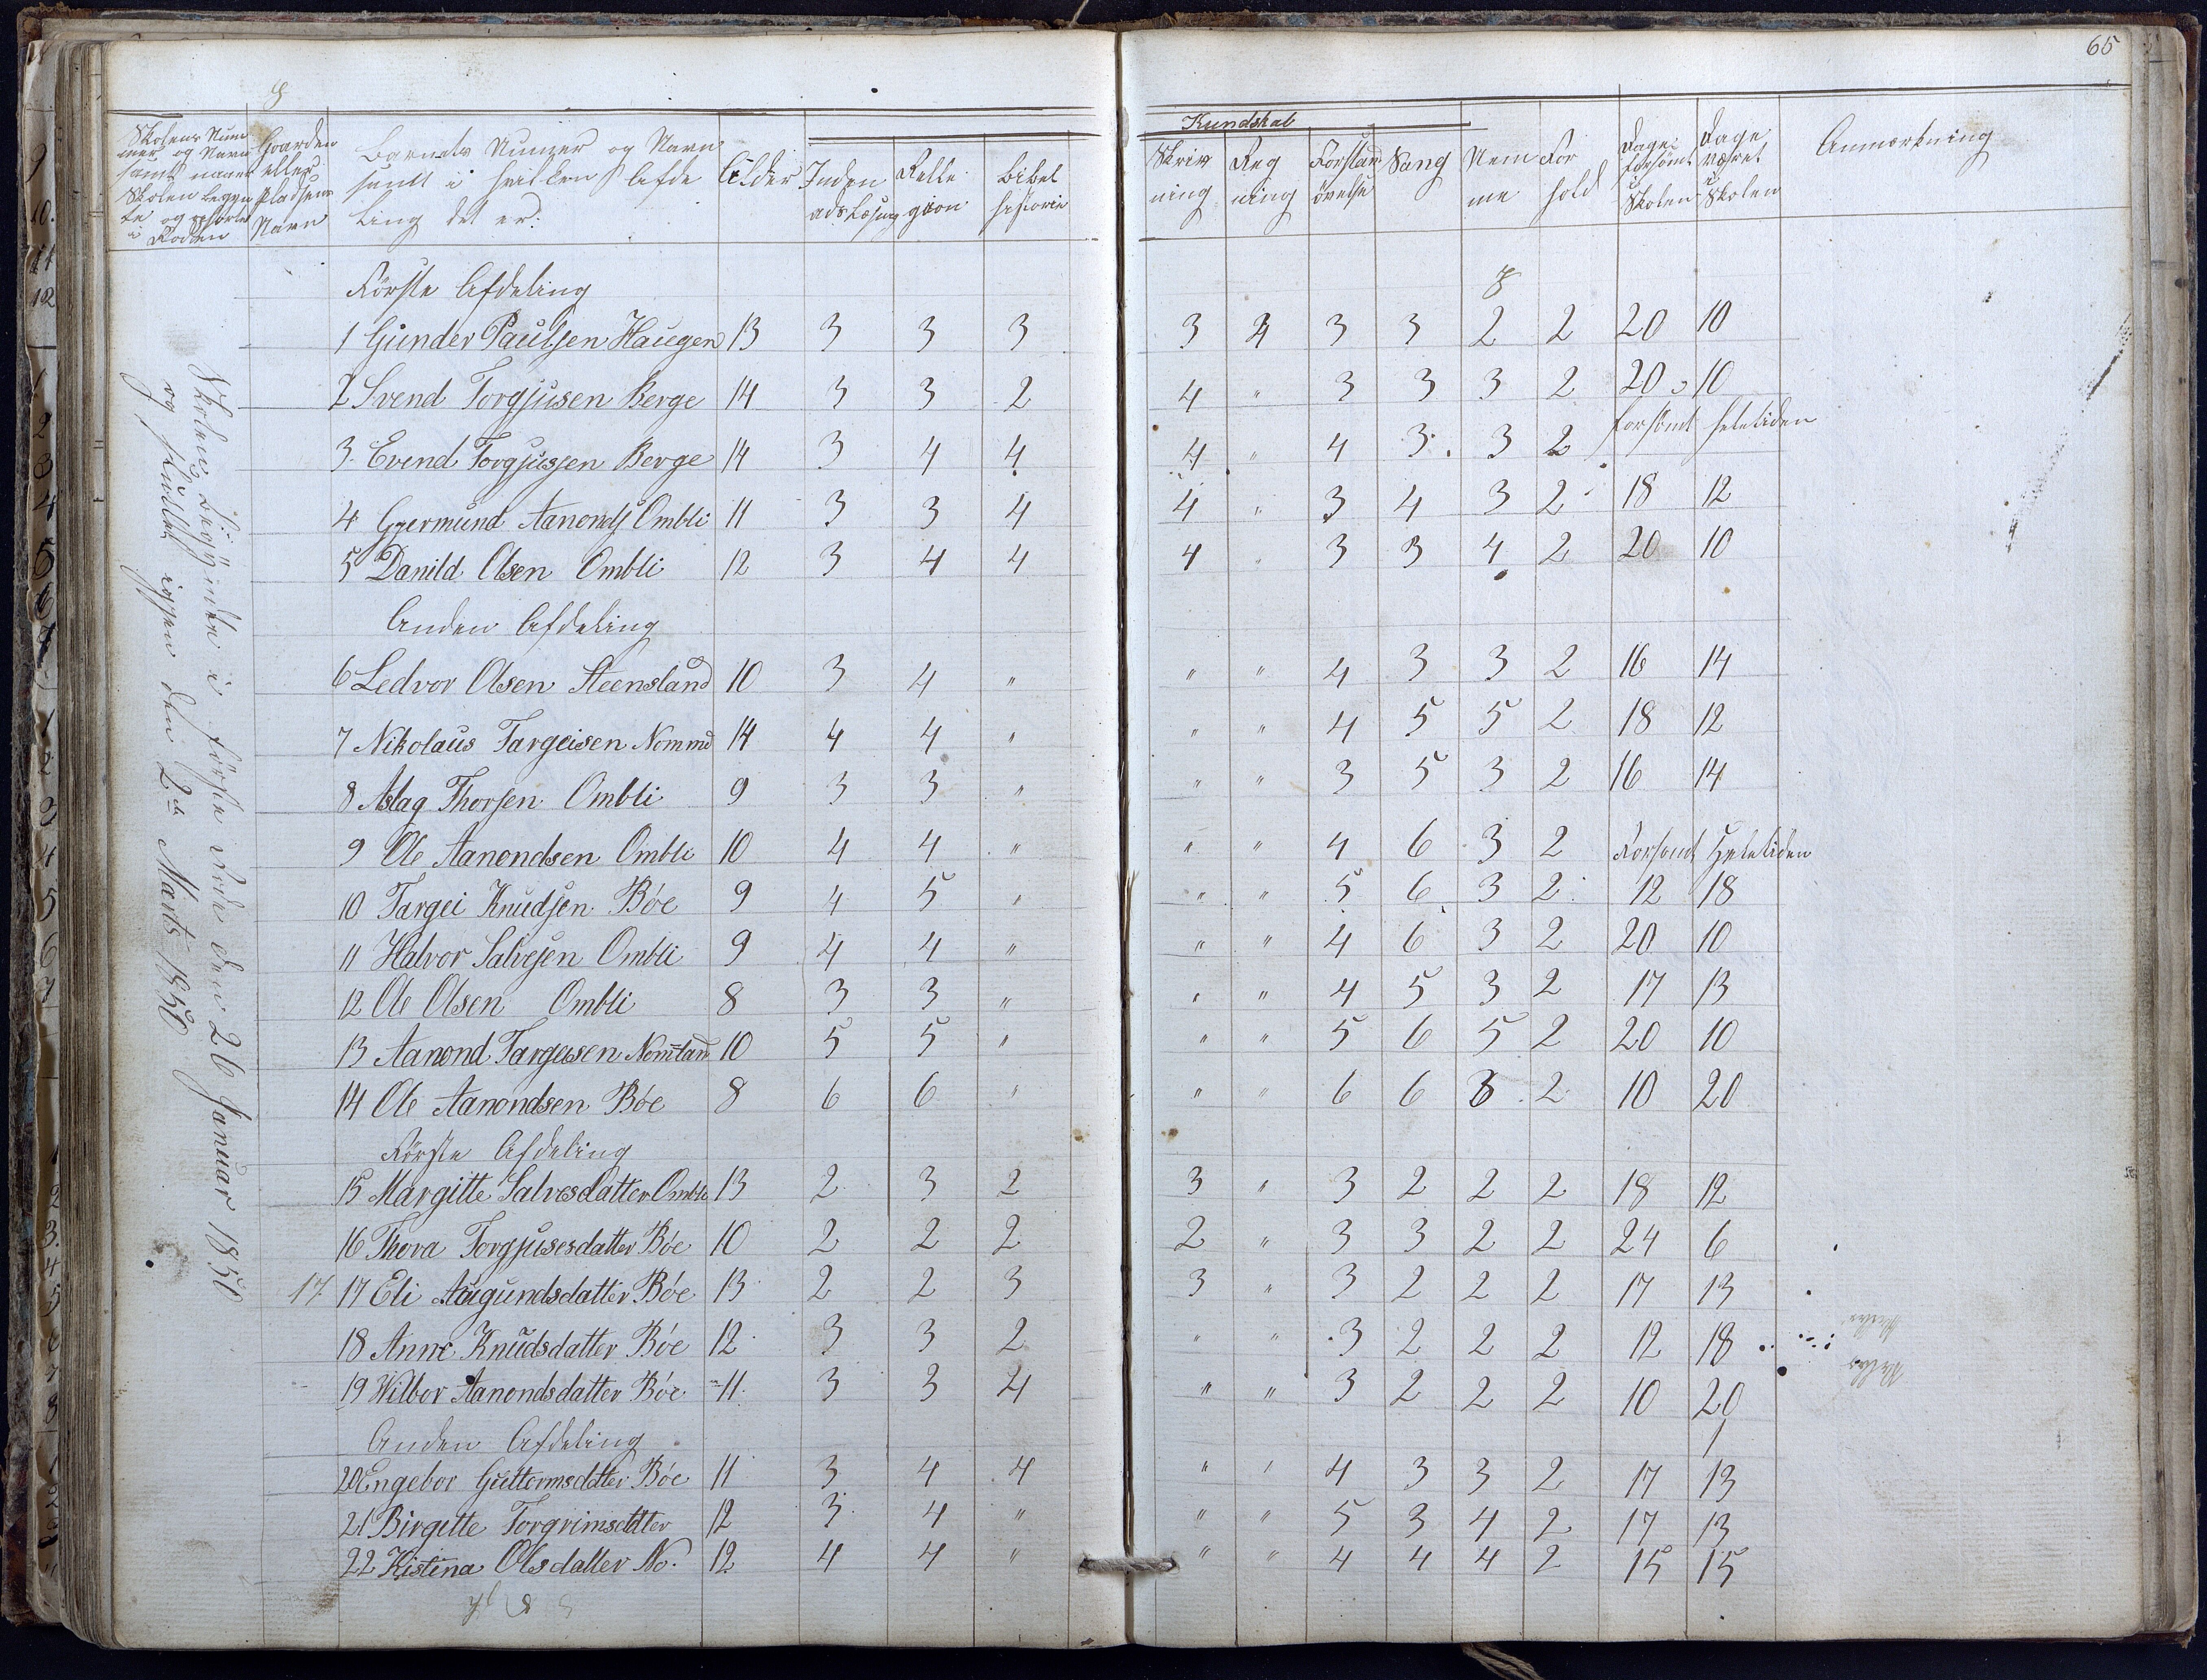 65
Skolens Num
mer og Navn
samt naar
Skolen begyn
te og sluttet
i Roden
Gaarden
eller
Pladsens
Navn
Barnets Numer og Navn
samt i hvilken Afde
ling det er:
Alder
Inden
ads Læsning
Relle
gion
Bibel
historie
Kundskab
Skriv
ning
Reg
ning
Forstand
øvelse
Sang
Nem
me
For
hold
Dage
forsømt
i
Skolen
Dage
været
i
Skolen
Anmærkning
Skolen Begyndte i første Rode den 26 Januar 1850
og sluttet igjen den 2de Marts 1850
Første Afdeling
1 Gunder Paulsen Haugen 13 3 3 3 3 4 3 3 2 2 20 10
2 Svend Torgjusen Berge 14 3 3 2 4 " 3 3 3 2 20 10
3 Evend Torgjusen Berge 14 3 4 4 4 " 4 3 3 2 forsømt heletiden
4 Gjermund Aanonds Ombli 11 3 3 4 4 " 3 4 3 2 18 12
5 Danild Olsen Ombli 12 3 4 4 4 " 3 3 4 2 20 10
Anden Afdeling
6 Ledvor Olsen Steensland 10 3 4 " " " 4 3 3 2 16 14
7 Nikolaus Targeisen Nommd 14 4 4 " " " 4 5 5 2 18 12
8 Aslag Thorsen Ombli 9 3 3 " " " 3 5 3 2 16 14
9 Ole Aanondsen Ombli 10 4 4 " " " 4 6 3 2 Forsømt Heletiden
10 Targei Knudsen Bøe 9 4 5 " " " 5 6 3 2 12 18
11 Halvor Salvesen Ombli 9 4 4 " " " 4 6 3 2 20 10
12 Ole Olsen Ombli 8 3 3 " " " 4 5 3 2 17 13
13 Aanond Targeisen Nomlan 10 5 5 " " " 5 6 5 2 20 10
14 Ole Aanondsen Bøe 8 6 6 " " " 6 6 3 2 10 20
Første Afdeling
15 Margitte Salvesdatter Ombli 13 2 3 2 3 " 3 2 2 2 18 12
16 Thora Torgjusesdatter Bøe 10 2 2 2 2 " 3 3 2 2 24 6
17 17 Eli Asgundsdatter Bøe 13 2 2 3 3 " 3 2 2 2 17 13
18 Anne Knudsdatter Bøe 12 3 3 2 " " 3 2 2 2 12 18
19 Wilbor Aanondsdatter Bøe 11 3 3 4 " " 3 2 2 2 10 20
Anden Afdeling
20 Engebor Guttormsdatter Bøe 11 3 4 4 " " 4 3 3 2 17 13
21 Birgitte Torgrimsdatter 12 3 4 " " " 5 3 4 2 17 13
22 Kistina Olsdatter No. 12 4 4 " " " 4 4 4 2 15 15